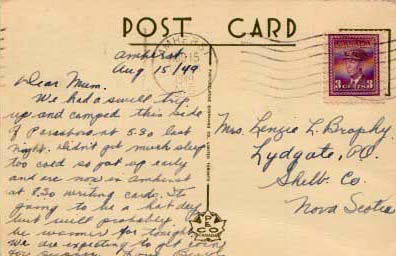 POST CARD
Amherst.
Aug 15/49
Dear Mum.
We had a swell trip
up and camped this side
of Parrsboro at 5.30 last
night. Didn't get much sleep
too cold so got up early
and are now in Amherst
at 8.30 writing cards. It's
going to be a hot day
but will probably
be warmer for tonight
we are expecting to get
for supper. Love
Mrs. Lenzie L. Brophy.
Lydgate,
Shelb. Co.
Nova Scotia
CANADA
3 CENTS 3
PECO
CANADA